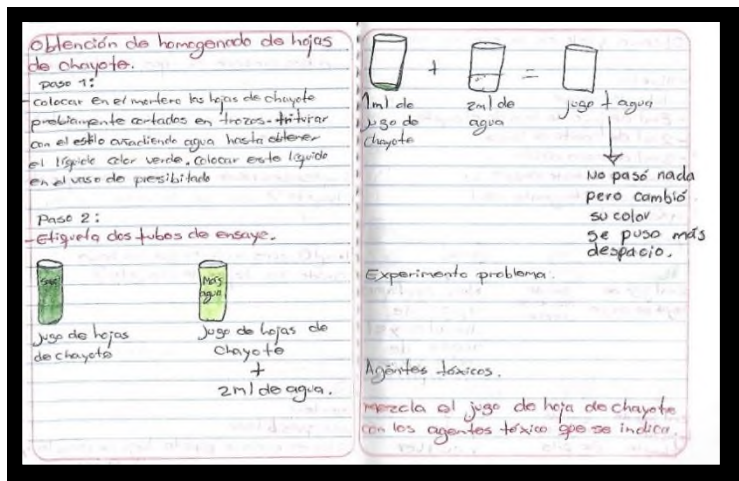 Obtención de homogenado de hojas
de chayote.
Paso 1:
- colocar en el mortero las hojas de chayote
previamente cortados en trozos - triturar
con el estilo añadiendo agua hasta obtener
el líquido color verde. colocar este líquido
en el vaso de presibitado
Paso 2:
- Etiqueta dos tubos de ensaye.
Mas
agua
Jugo de hojas
de chayote
Jugo de hojas de
chayote
+
2ml de agua.
+
=
1ml de
jugo de
chayote
2ml de
agua
jugo + agua
No pasó nada
pero cambió
su color
se puso más
despacio.
Experimento problema.
Agentes tóxicos.
mezcla el jugo de hoja de chayote
con los agentes tóxico que se indica